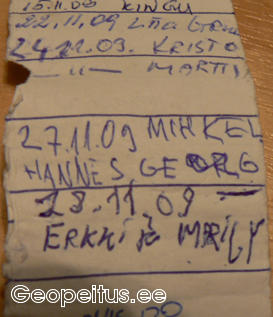 15.11.09 KINGU
22.11.09
24.11.09. KRISTO
—"— MARTIN
27.11.09 MIHKEL
HANNES GEORG
28.11.09
ERKKI JA MARILY
Geopeitus.ee